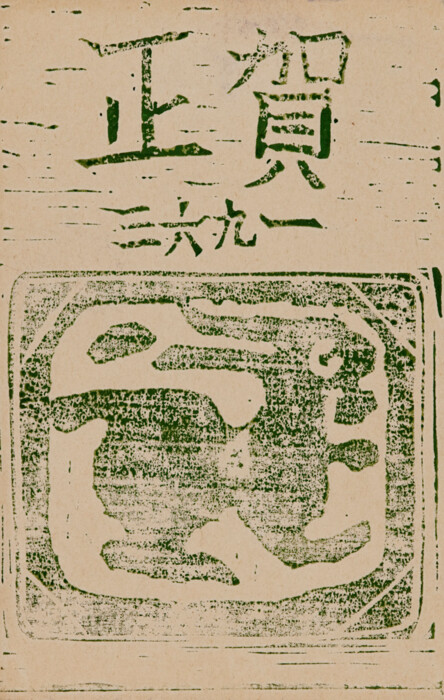 賀正
一九六三